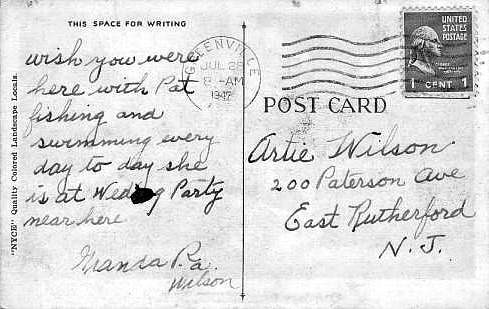 THIS SPACE FOR WRITING
wish you were
here with Pat
fishing and
swimming every
day to day she
is at Party
near here
Wilson
"NYCE" Quality Colored Landscape Locals.
GREENVILLE
JUL 28
8 - AM
1942
UNITED
STATES
POSTAGE
1 CENT 1
POST CARD
Artie Wilson
200 Paterson Ave
East Rutherford
N. J.